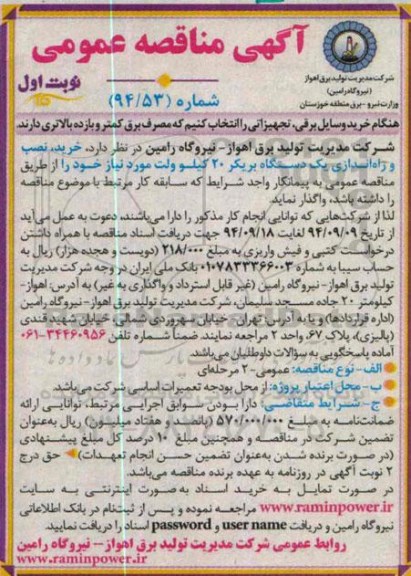 آگهی مناقصه عمومی
شرکت مدیریت تولید برق اهواز
(نیروگاه رامین)
وزارت نیرو - برق منطقه خوزستان
نوبت اول
شماره (۹۴/۵۳)
هنگام خرید وسایل برقی، تجهیزاتی را انتخاب کنیم که مصرف برق کمتر و بازده بالاتری دارند.
شرکت مدیریت تولید برق اهواز - نیروگاه رامین در نظر دارد، خرید، نصب
و راه‌اندازی یک دستگاه بریکر ۲۰ کیلو ولت مورد نیاز خود را از طریق
مناقصه عمومی به پیمانکار واجد شرایط که سابقه کار مرتبط با موضوع مناقصه
را داشته باشد، واگذار نماید.
لذا از شرکت‌هایی که توانایی انجام کار مذکور را دارا می‌باشند، دعوت به عمل می‌آید
از تاریخ ۹۴/۰۹/۰۹ لغایت ۹۴/۰۹/۱۸ جهت دریافت اسناد مناقصه با همراه داشتن
درخواست کتبی و فیش واریزی به مبلغ ۲۱۸/۰۰۰ (دویست و هجده هزار) ریال به
حساب سیبا به شماره ۰۱۰۷۸۳۳۳۶۶۰۰۳ بانک ملی ایران در وجه شرکت مدیریت
تولید برق اهواز - نیروگاه رامین (غیر قابل استرداد و واگذاری به غیر) به آدرس: اهواز-
کیلومتر ۲۰ جاده مسجد سلیمان، شرکت مدیریت تولید برق اهواز - نیروگاه رامین
(اداره قراردادها) و یا به آدرس: تهران - خیابان سهروردی شمالی، خیابان شهید قندی
(پالیزی)، پلاک ۶۷، واحد ۲ مراجعه نمایند. ضمناً شماره تلفن ۳۴۴۶۰۹۵۶-۰۶۱
آماده پاسخگویی به سؤالات داوطلبان می‌باشد.
الف- نوع مناقصه: عمومی - ۲ مرحله‌ای
ب- محل اعتبار پروژه: از محل بودجه تعمیرات اساسی شرکت می‌باشد.
ج- شرایط متقاضی: دارا بودن سوابق اجرایی مرتبط، توانایی ارائه
ضمانت‌نامه به مبلغ ۵۷۰/۰۰۰/۰۰۰ (پانصد و هفتاد میلیون) ریال به‌عنوان
تضمین شرکت در مناقصه و همچنین مبلغ ۱۰ درصد کل مبلغ پیشنهادی
(در صورت برنده شدن به‌عنوان تضمین حسن انجام تعهدات) حق درج
۲ نوبت آگهی در روزنامه به عهده برنده مناقصه می‌باشد.
در صورت تمایل به خرید اسناد به صورت اینترنتی به سایت
www.raminpower.ir مراجعه نموده و پس از ثبت‌نام در بانک اطلاعاتی
نیروگاه رامین و دریافت user name و password اسناد را دریافت نمایید.
روابط عمومی شرکت مدیریت تولید برق اهواز - نیروگاه رامین
www.raminpower.ir